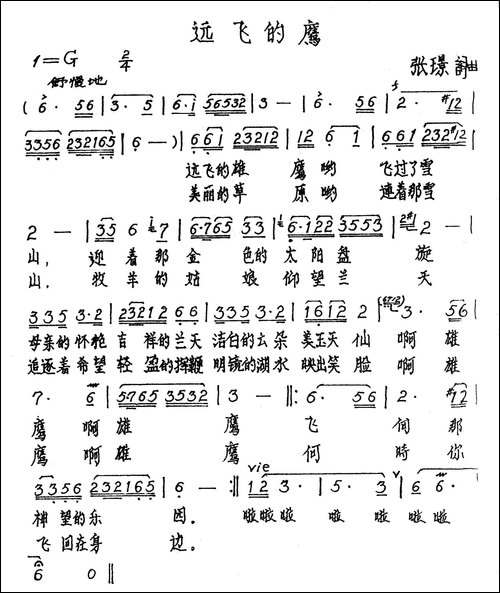 远飞的鹰
1=G 2/4
张璟 詞曲
舒慢地
(6· 56 | 3· 5 | 6·i 56532 | 3 — | 6· 56 | 2· #12 |
3356 232165 | 6 — ) | 661 23212 | 12 6 1 | 661 232#12 |
远飞的雄 鹰哟 飞过了雪
美丽的草 原哟 連着那雪
2 — | 35 6 7 | 6·765 33 | 6·122 3553 | 2 — |
山, 迎着那金 色的太阳盘 旋
山. 牧羊的姑 娘仰望兰 天
335 3·2 | 23212 66 | 335 3·2 | 1612 2 | 3· 56 |
母亲的怀抱吉祥的兰天 洁白的云朵 美玉天仙 啊雄
追逐着希望轻盈的挥鞭 明镜的湖水 映出笑脸 啊雄
7· 6 | 5765 3532 | 3 — ‖: 6· 56 | 2· #12 |
鹰 啊雄 鹰 飞 伺那
鹰 啊雄 鹰 何 時你
vie
3356 232165 | 6 — :‖ 12 3· | 5· 3 | 6 6· |
神望的乐 因. 啦啦啦 啦 啦啦啦
飞回在身 边.
6 0 ‖